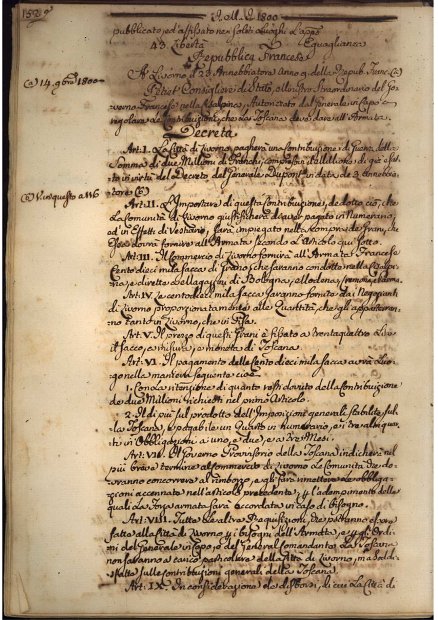 A. All. D. 1800
pubblicato, ed' affisso ne' soliti Luoghi
43. Libertà Eguaglianza
Repubblica Francese
A Livorno d' 23 Annebbiatore Anno 9. della Repub. Franc. (a)
(a) 14. 9bre 1800
Petiet Consigliere di Stato, Ministro Straordinario del Go-
verno Francese nella Cisalpina, Autorizzato dal Generale in Capo a
regolare le Contribuzioni, che la Toscana deve dare all' Armata.
Decreta
Art: I. La Città di Livorno pagherà una Contribuzione di Guerra della
Somma di due Millioni di Franchi, compresovi il Millione di già esa-
to in virtù del Decreto del Generale Dupont in data de' 3 Annebbia-
tore (B)
Art: II. L'Importare di questa Contribuzione, dedotto ciò, che
la Comunità di Livorno giustificherà d' aver pagato in Numerario,
ed' in Effetti di Vestiario, sarà impiegato nella compra de' Grani, che
Essa dovrà fornire all' Armata secondo l' Articolo qui sotto.
Art: III. Il Commercio di Livorno fornirà all' Armata Francese
Cento dieci mila Sacca di Grano, che saranno condotte nella Cisalpi-
na, e dirette a' Magazzini di Bologna, Modena, Cremona, e Parma.
Art: IV. Le cento dieci mila Sacca saranno fornite da' Negozianti
di Livorno proporzionatamente alle Quantità, che gli apparterran-
no tanto in Livorno, che in Pisa.
Art: V. Il prezzo di questi Grani è fissato a trentaquattro Lire
il sacco, a misura, e moneta di Toscana.
Art: VI. Il pagamento delle Cento dieci mila Sacca avrà Luo-
go nella maniera seguente cioè
1. Con la ritenzione di quanto resta dovuto della Contribuzione
de' due Millioni richiesti nel primo Articolo.
2. Il di più sul prodotto dell' Imposizioni generali stabilite sul-
la Toscana, e pagabile un Quarto in numerario, e i tre altri quar-
ti in Obbligazioni a uno, e due, e a tre Mesi.
Art: VII. Il Governo Provvisorio della Toscana indicherà nel
più breve termine al Commercio di Livorno le Comunità che do-
vranno concorrere al rimborzo, e gli farà rimettere le obbliga-
zioni accennate nell' articolo precedente; p. l' adempimento delle
quali la forza armata sarà accordata in caso di bisogno.
Art: VIII. Tutte le altre Requisizioni, che potranno essere
fatte alla Città di Livorno p. i bisogni dell' Armata, e p. gli Ordi-
ni del Generale in Capo, o del General Comandante la Toscana
non saranno a carico particolare della Città di Livorno, ma sod-
disfatte sulle Contribuzioni generali della Toscana.
Art: IX. In considerazione de' disborsi, di cui la Città di